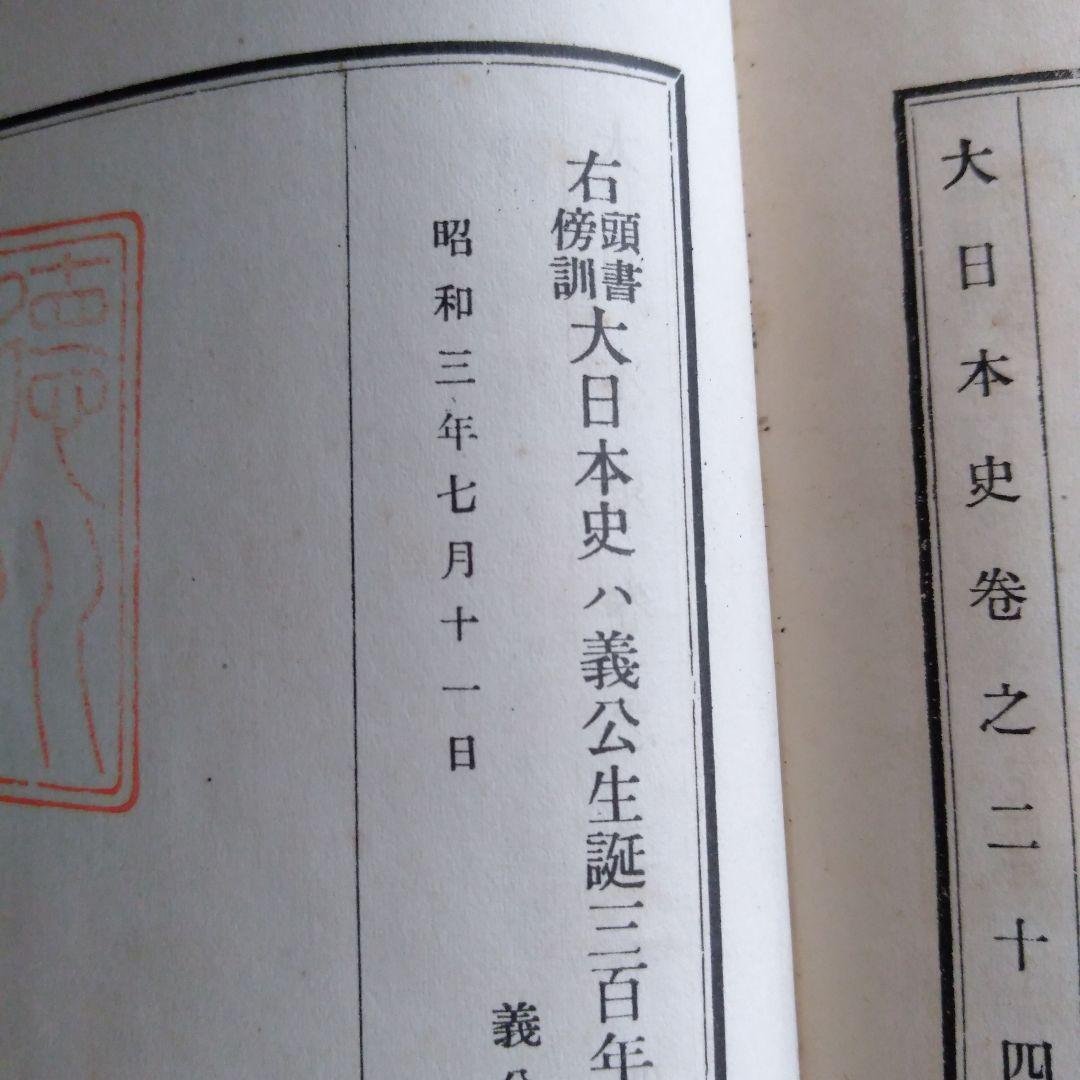 大日本史卷之二十四
右頭書傍訓大日本史ハ義公生誕三百年
昭和三年七月十一日
義公
德川